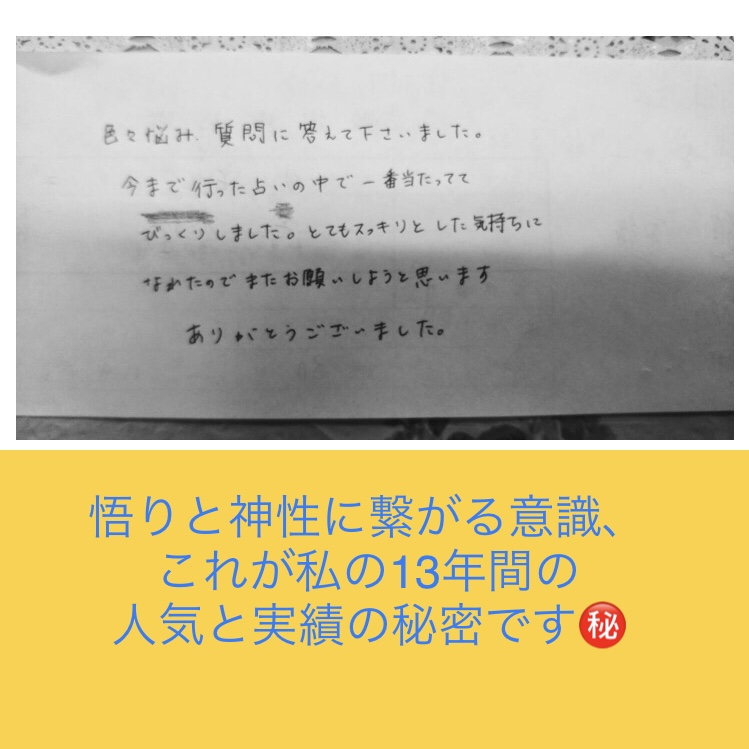 色々悩み、質問に答えて下さいました。
今まで行った占いの中で一番当たってて
びっくりしました。とてもスッキリとした気持ちに
なれたのでまたお願いしようと思います
ありがとうございました。
悟りと神性に繋がる意識、
これが私の13年間の
人気と実績の秘密です㊙️